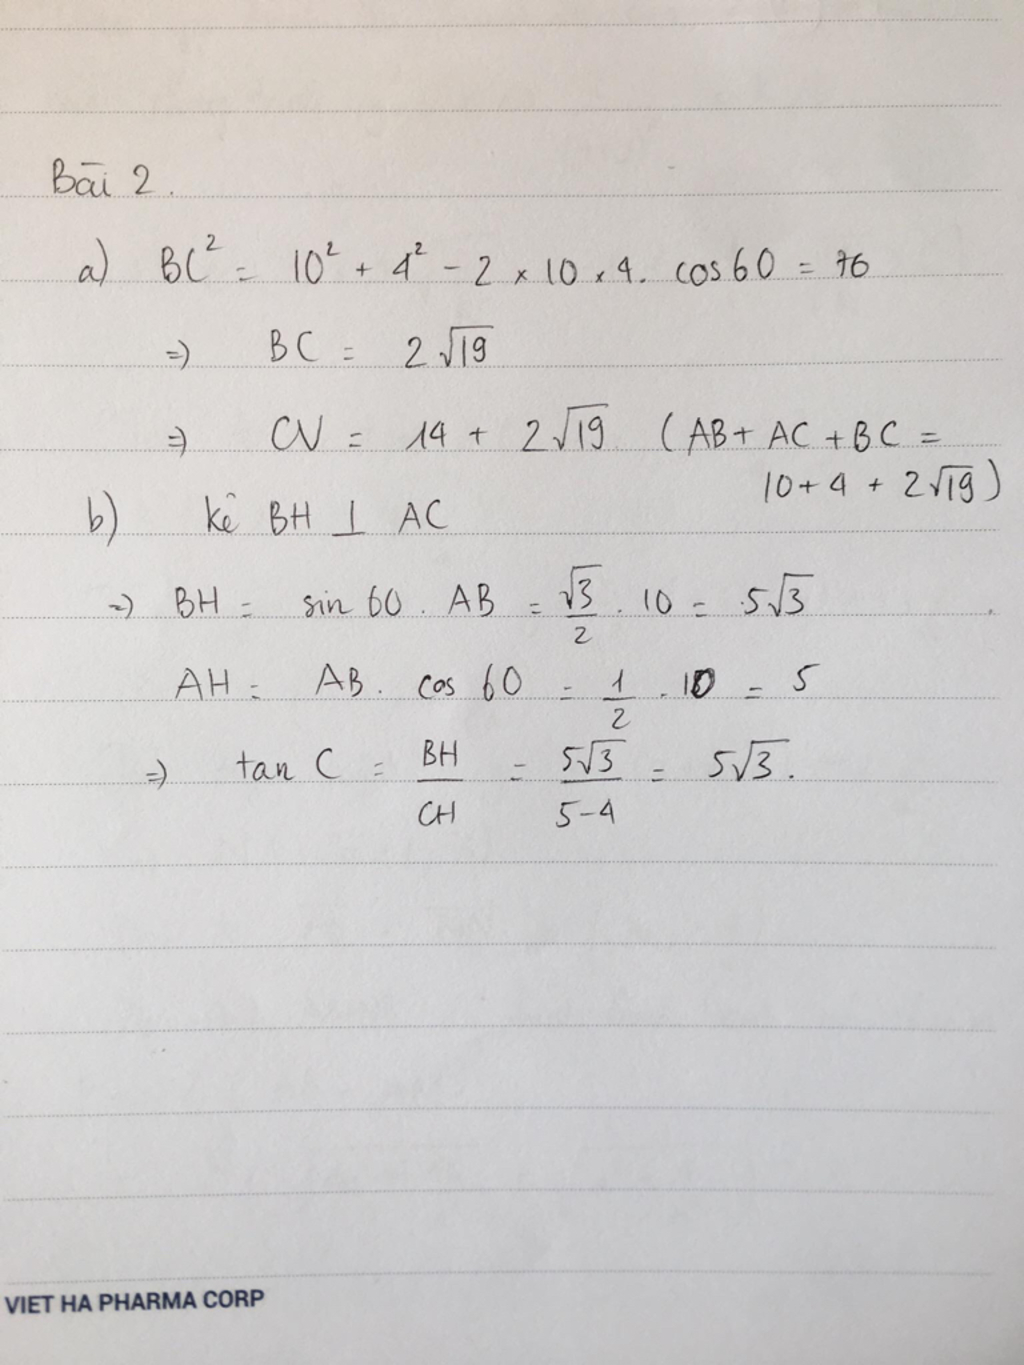 Bài 2.
a) BC² = 10² + 4² - 2 × 10 × 4. cos 60 = 76
=) BC = 2√19
=) CV = 14 + 2√19 (AB + AC + BC =
10 + 4 + 2√19)
b) kẻ BH ⊥ AC
=) BH = sin 60 . AB = √3/2 . 10 = 5√3
AH = AB . cos 60 = 1/2 . 10 = 5
=) tan C = BH/CH = 5√3/5-4 = 5√3.
VIET HA PHARMA CORP